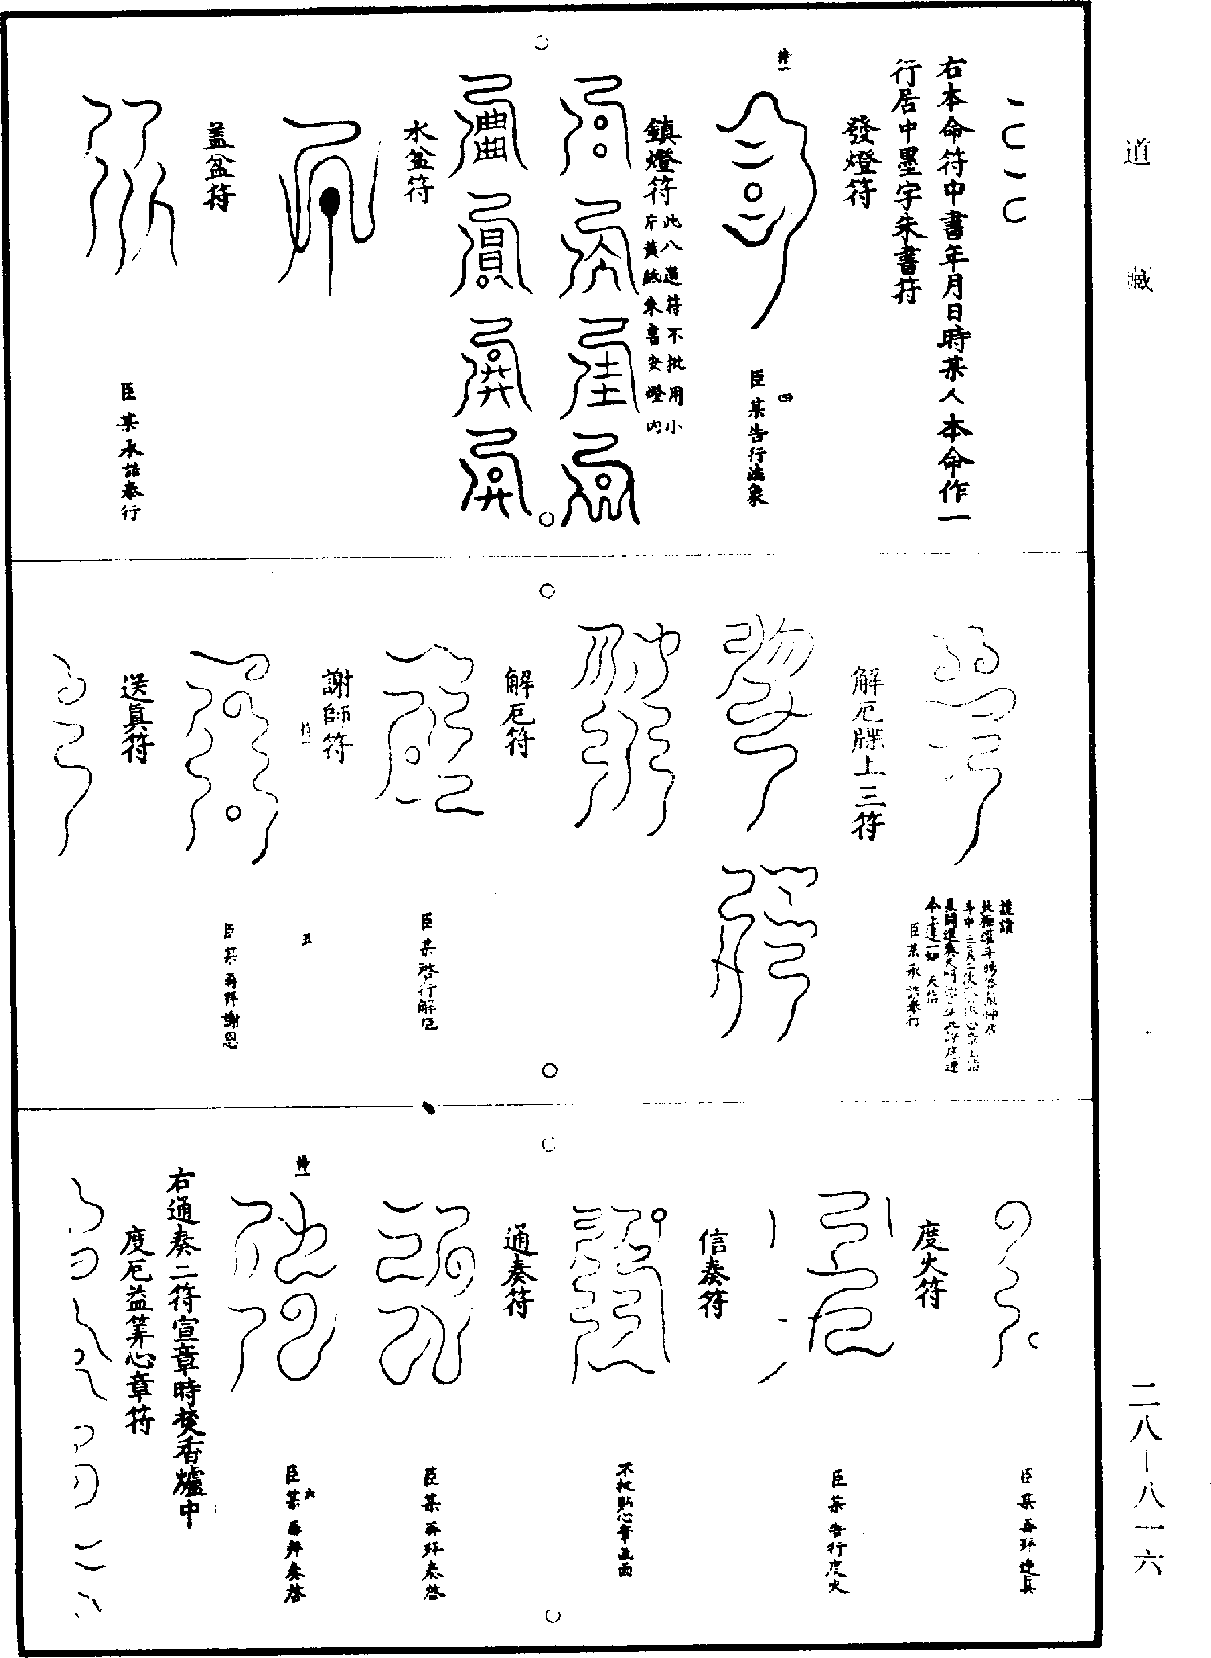 道藏
右本命符中書年月日時某人本命作一
行居中墨字朱書符
發燈符
臣某告行
四
鎮燈符
此八道符不批用小
片黃紙朱書安燈內
水盆符
蓋盆符
臣某承誥奉行
謹請
臣某承誥奉行
解厄牒上三符
解厄符
臣某啓行解厄
謝師符
五
臣某再拜謝恩
送真符
臣某再拜送真
度火符
臣某告行度火
信奏符
不批貼心章函面
通奏符
臣某再拜奏啓
六
臣某再拜奏啓
右通奏二符宣章時焚香爐中
度厄益筭心章符
二八-八一六